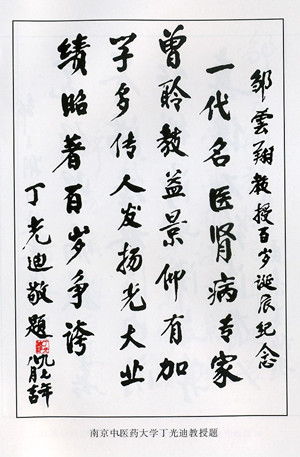 邹雲翔教授百岁诞辰纪念
一代名医肾病专家
曾聆教益景仰有加
学多传人发扬光大业
绩昭著百岁争誇
丁光迪敬题
一九九七年
八月吉
南京中医药大学丁光迪教授题